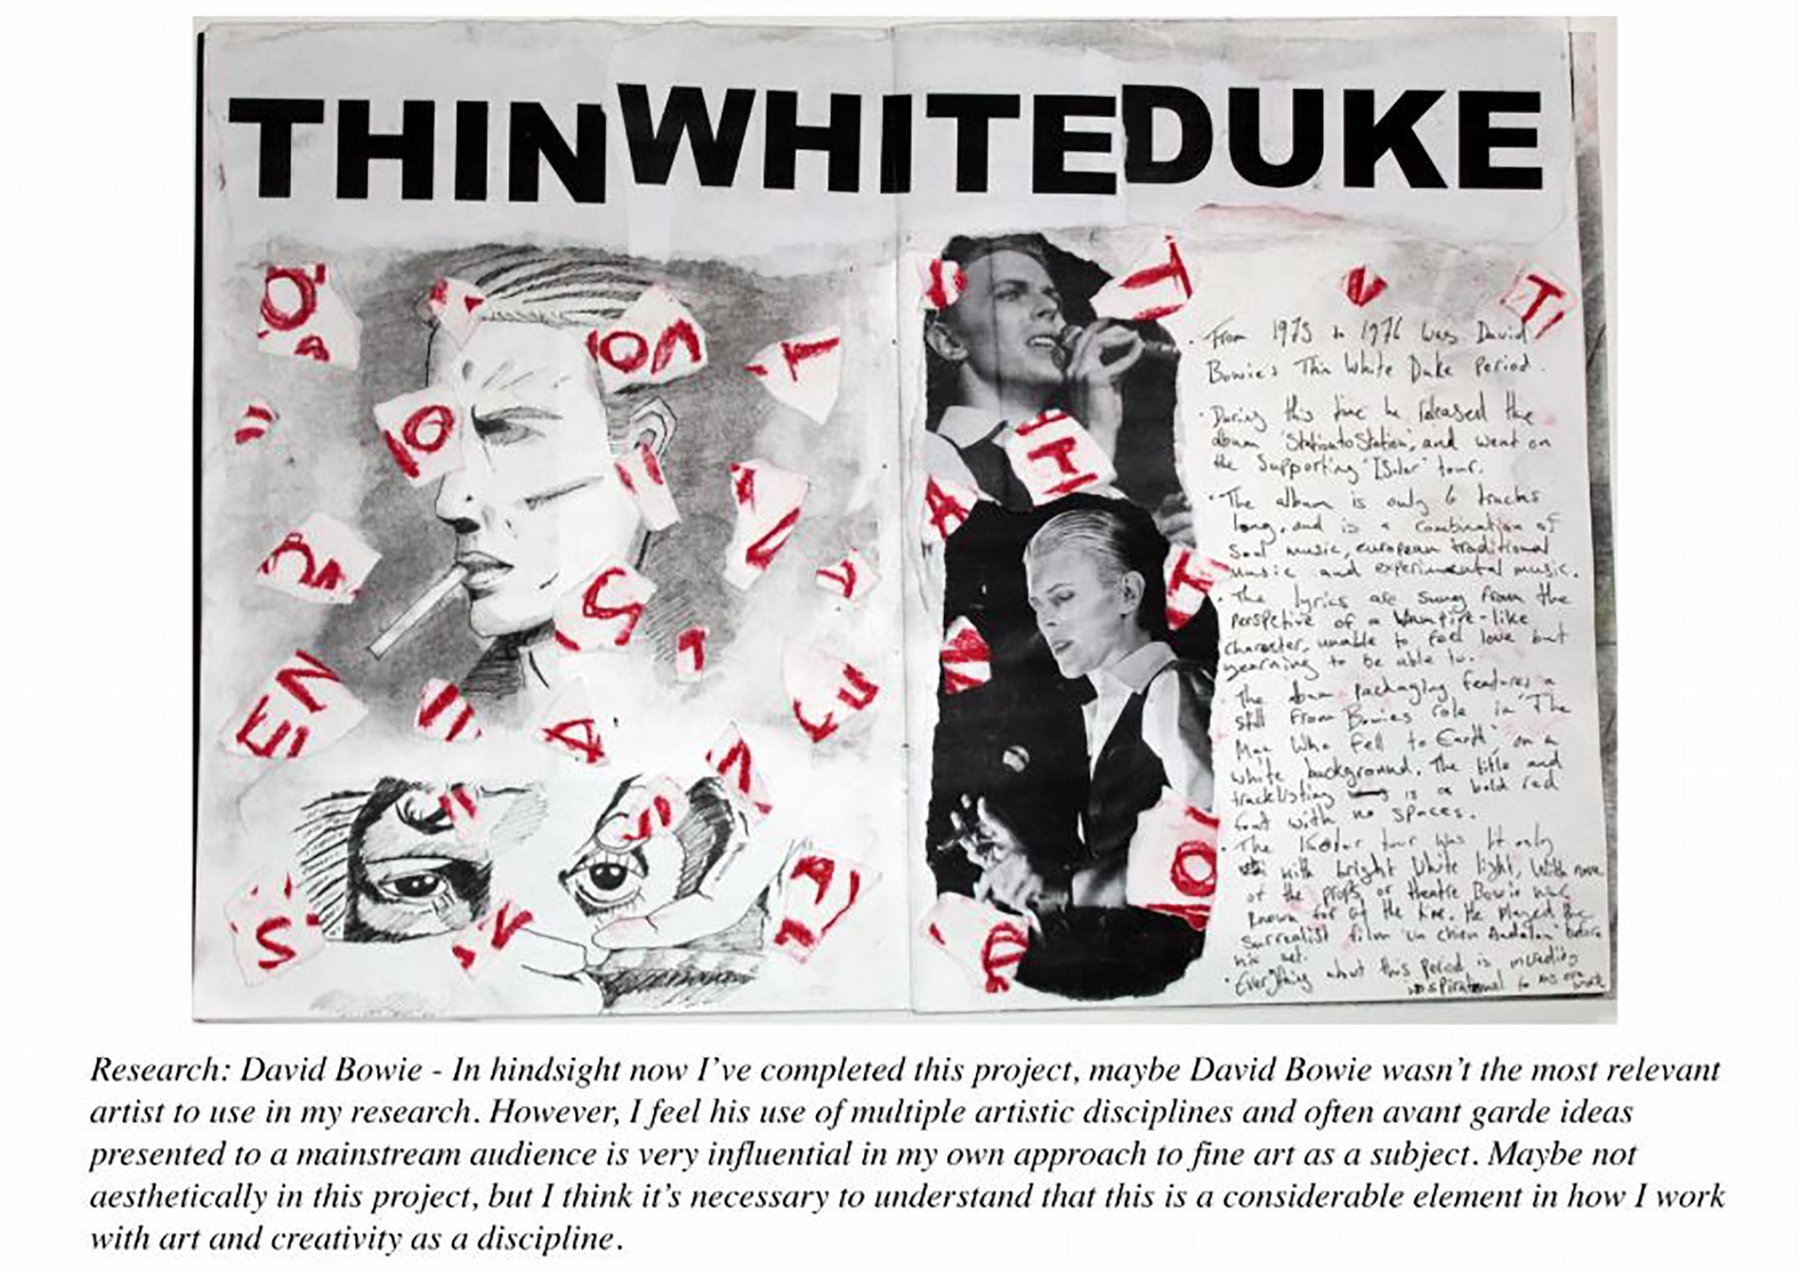 THINWHITEDUKE
From 1975 to 1976 was David
Bowie's Thin White Duke period.
During this time he released the
album 'StationtoStation', and went on
the supporting 'ISolar' tour.
The album is only 6 tracks
long, and is a combination of
soul music, european traditional
music and experimental music.
The lyrics are sung from the
perspective of a vampire-like
character, unable to feel love but
yearning to be able to.
The album packaging features a
still from Bowies role in 'The
Man Who Fell to Earth', on a
white background. The title and
tracklisting is a bold red
font with no spaces.
The ISolar tour was lit only
with bright white light, with none
of the props or theatre Bowie was
known for at the time. He played the
surrealist film 'un chien Andalou' before
his set.
Everything about this period is incredibly
inspirational to my own work
Research: David Bowie - In hindsight now I've completed this project, maybe David Bowie wasn't the most relevant
artist to use in my research. However, I feel his use of multiple artistic disciplines and often avant garde ideas
presented to a mainstream audience is very influential in my own approach to fine art as a subject. Maybe not
aesthetically in this project, but I think it's necessary to understand that this is a considerable element in how I work
with art and creativity as a discipline.